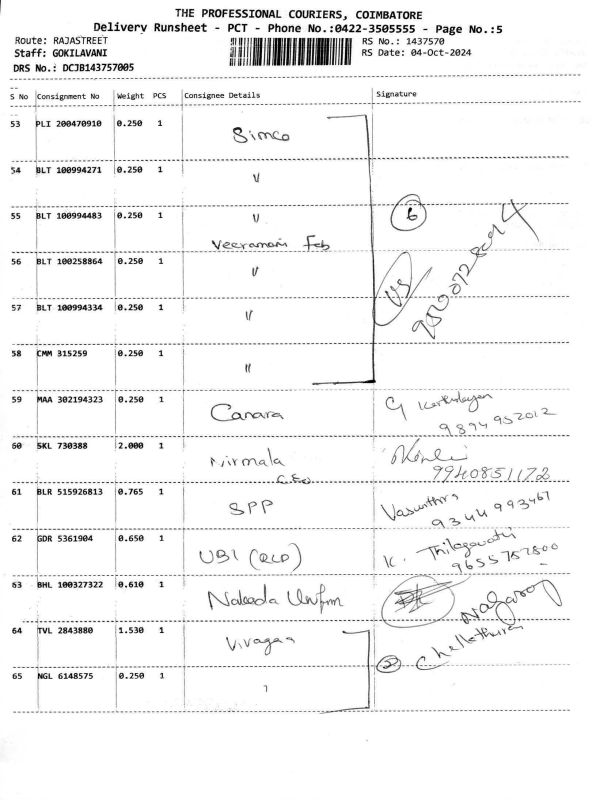 THE PROFESSIONAL COURIERS, COIMBATORE
Delivery Runsheet - PCT - Phone No.:0422-3505555 - Page No.:5
Route: RAJASTREET RS No.: 1437570
Staff: GOKILAVANI RS Date: 04-Oct-2024
DRS No.: DCJB143757005
S No Consignment No Weight PCS Consignee Details Signature
53 PLI 200470910 0.250 1 Simco
54 BLT 100994271 0.250 1 "
55 BLT 100994483 0.250 1 " 6
Veeramani Fab
56 BLT 100258864 0.250 1 "
57 BLT 100994334 0.250 1 "
58 CMM 315259 0.250 1 "
59 MAA 302194323 0.250 1 Canara G
9894952012
60 SKL 730388 2.000 1 Nirmala
CEO 9940851172
61 BLR 515926813 0.765 1 SPP Vasunthra
9344993467
62 GDR 5361904 0.650 1 UBI K. Thilagavathi
9655757800
63 BHL 100327322 0.610 1
64 TVL 2843880 1.530 1 Vivagaa Nagaraj
2 Chellathurai
65 NGL 6148575 0.250 1 "